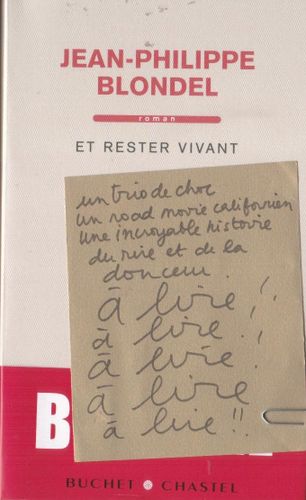 JEAN-PHILIPPE
BLONDEL
roman
ET RESTER VIVANT
un trio de choc
un road movie californien
Une incroyable histoire
du rire et de la
douceur.
à lire !
à lire !
à lire.
à lire
à lire !!
B
BUCHET CHASTEL